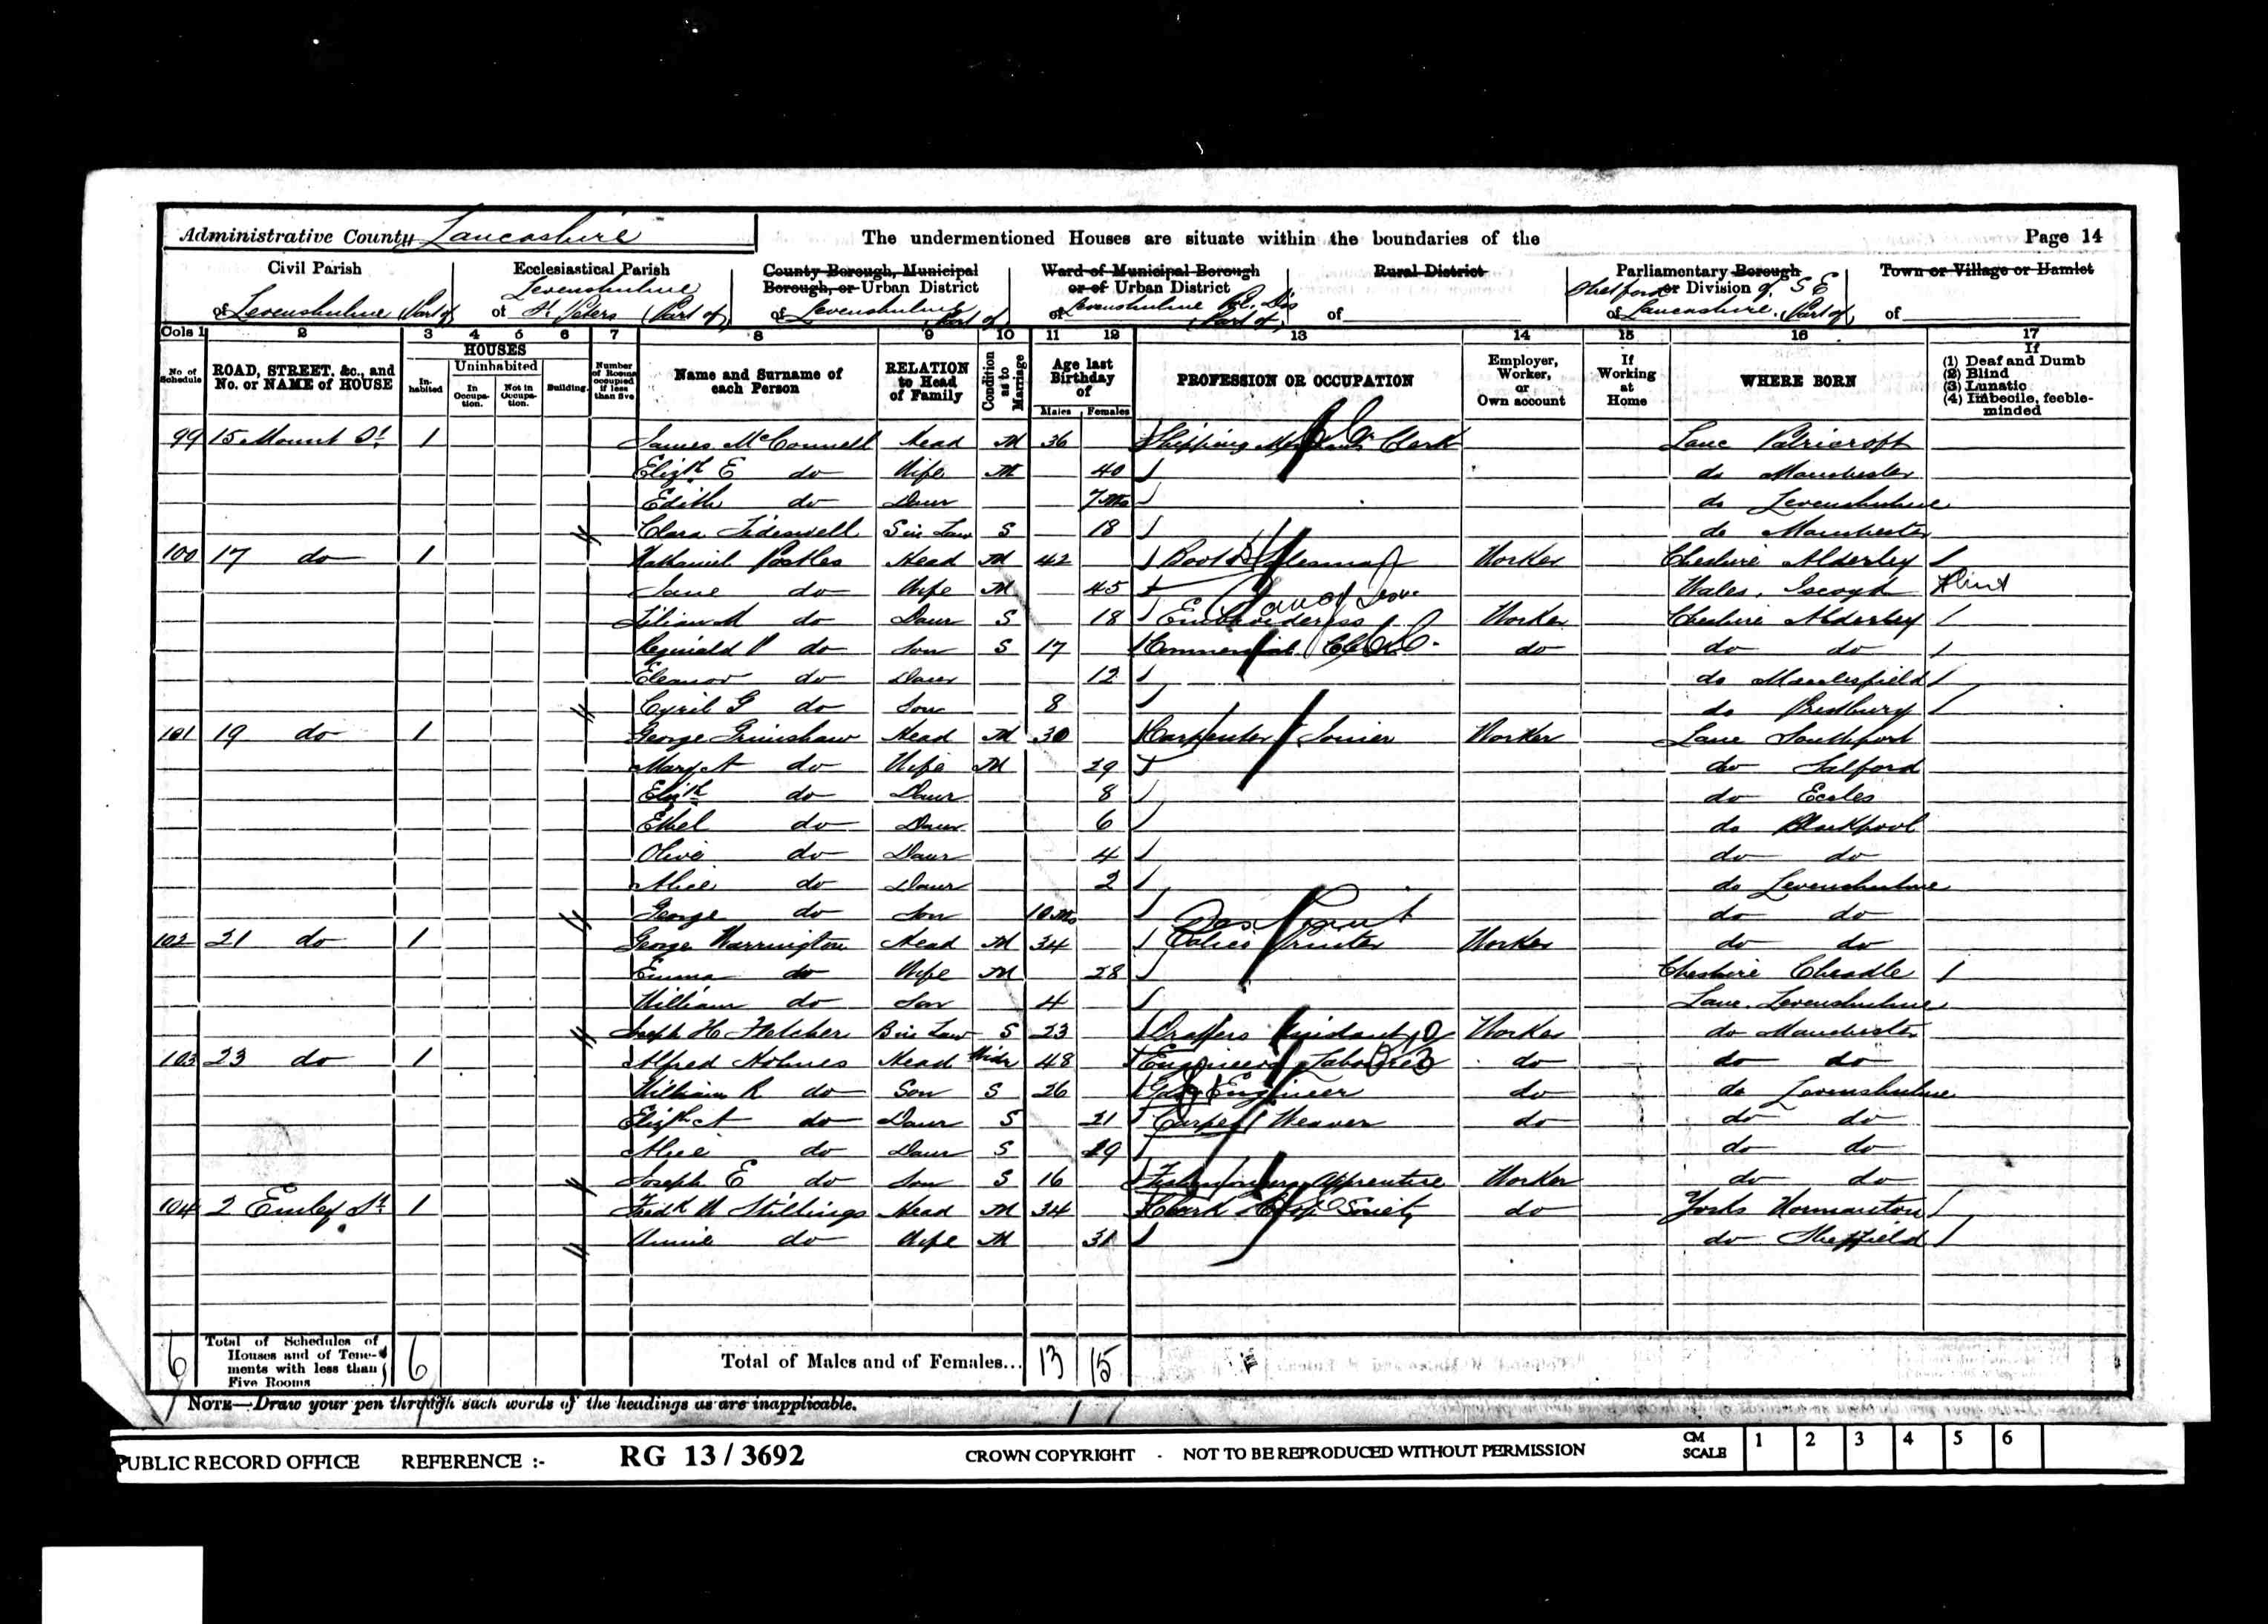 Administrative County Lancashire
The undermentioned Houses are situate within the boundaries of the
Page 14
Civil Parish of Levenshulme (Part of)
Ecclesiastical Parish of Levenshulme St Peters (Part of)
County Borough, Municipal Borough, or Urban District of Levenshulme Part of
Ward of Municipal Borough or of Urban District of Levenshulme (Part of)
Rural District of
Parliamentary Borough or Division of Stretford S E of Lancashire (Part of)
Town or Village or Hamlet of
Cols 1 2 3 4 5 6 7 8 9 10 11 12 13 14 15 16 17
No of Schedule
ROAD, STREET, &c., and No. or NAME of HOUSE
HOUSES
Inhabited
Uninhabited
In Occupation.
Not in Occupation.
Building.
Number of Rooms occupied if less than five
Name and Surname of each Person
RELATION to Head of Family
Condition as to Marriage
Age last Birthday of
Males Females
PROFESSION OR OCCUPATION
Employer, Worker, or Own account
If Working at Home
WHERE BORN
If (1) Deaf and Dumb (2) Blind (3) Lunatic (4) Imbecile, feeble-minded
99 15 Mount St 1 James McConnell Head M 36 Shipping Clerk Lanc Patricroft
Elizth E do Wife M 40 do Manchester
Edith do Daur 7 Mo do Levenshulme
Clara Tideswell S in Law S 18 do Manchester
100 17 do 1 Nathaniel Postles Head M 42 Boot Salesman Worker Cheshire Alderley
Jane do Wife M 45 Wales, Iscoyd Flint
Lilian M do Daur S 18 Embroideress Worker Cheshire Alderley
Reginald P do Son S 17 Commercial Clerk do do do
Eleanor do Daur 12 do Macclesfield
Cyril G do Son 8 do Bredbury
101 19 do 1 George Grimshaw Head M 30 Carpenter Joiner Worker Lanc Southport
Mary A do Wife M 29 do Salford
Elizth do Daur 8 do Eccles
Ethel do Daur 6 do Blackpool
Olive do Daur 4 do do
Alice do Daur 2 do Levenshulme
George do Son 10 Mo do do
102 21 do 1 George Warrington Head M 34 Calico Printer Worker do do
Emma do Wife M 28 Cheshire Cheadle
William do Son 4 Lanc. Levenshulme
Joseph H Fletcher B in Law S 23 Drapers Assistant Worker do Manchester
103 23 do 1 Alfred Holmes Head Widr 48 Engineers Labourer do do do
William R do Son S 26 Gas Engineer do do Levenshulme
Elizth A do Daur S 21 Carpet Weaver do do do
Alice do Daur S 19 do do
Joseph E do Son S 16 Fishmongers Apprentice Worker do do
104 2 Emley St 1 Fredk W Stillings Head M 34 Clerk Coop Society do Yorks Normanton
Annie do Wife M 31 do Sheffield
6 Total of Schedules of Houses and of Tenements with less than Five Rooms 6 Total of Males and of Females... 13 15
NOTE—Draw your pen through such words of the headings as are inapplicable.
PUBLIC RECORD OFFICE REFERENCE :- RG 13 / 3692 CROWN COPYRIGHT - NOT TO BE REPRODUCED WITHOUT PERMISSION CM SCALE 1 2 3 4 5 6